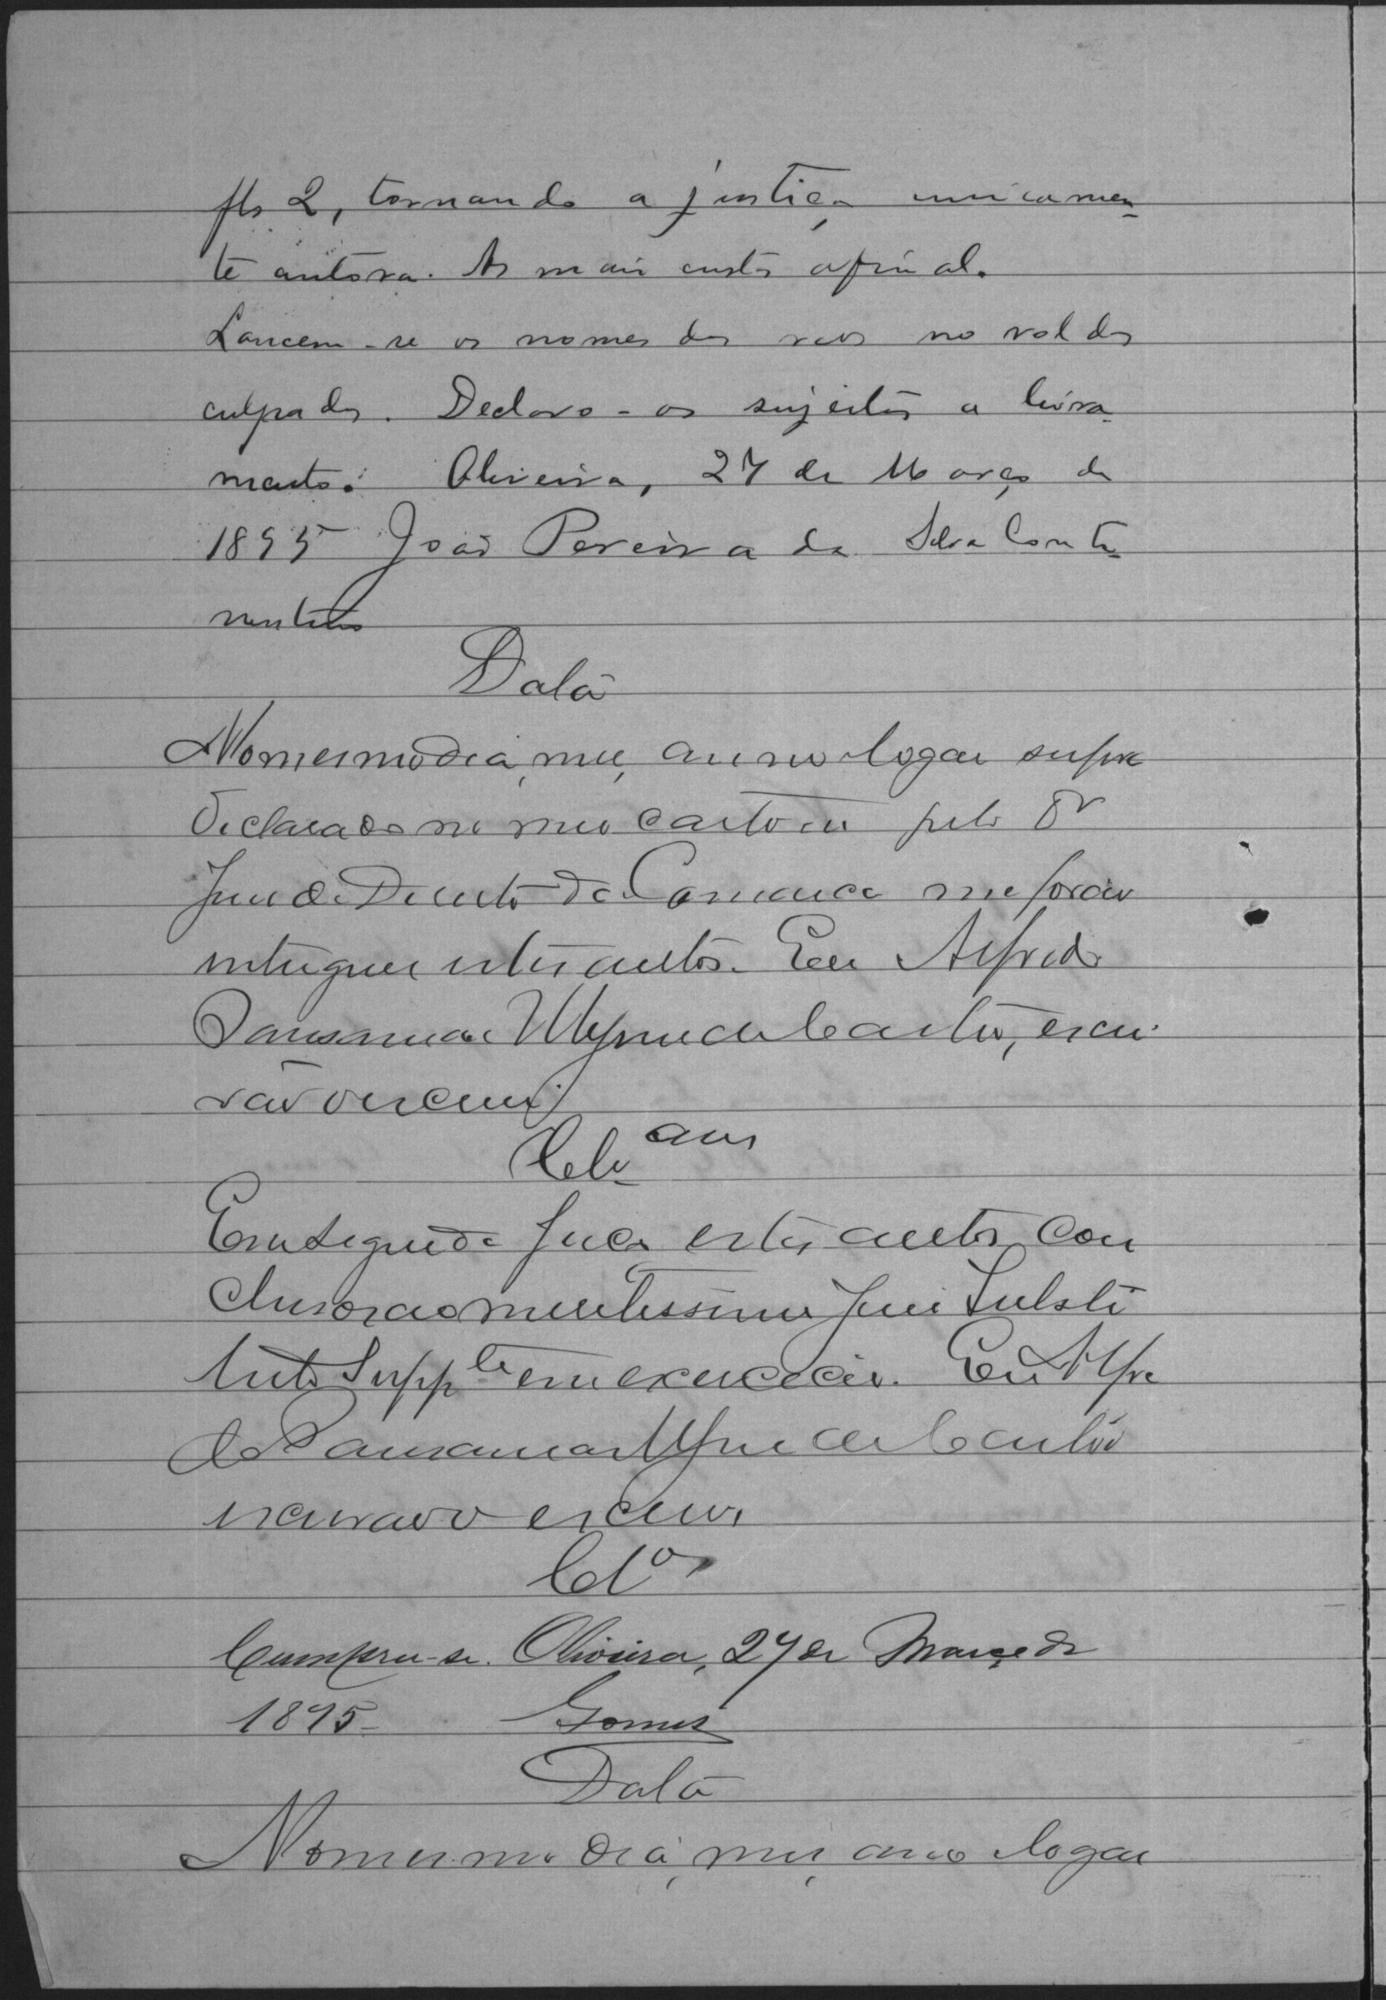 fls 2, tornando a justiça unicamen-
te autora. As mais custas afinal.
Lancem-se os nomes dos reos no rol dos
culpados. Declaro-os sujeitos a livra-
mento. Oliveira, 27 de Março de
1895 João Pereira da Silva Conti-
nentino
Data
No mesmo dia, mez, anno logar supra
declarado no meo cartorio pelo Dr
Juiz de Direito da Comarca me forão
entregues estes autos. Eu Alfredo
de Castro, escri-
vão o escrevi.
Clsam
Em seguida faço estes autos con
clusos ao meritissimo Juiz Substi
tuto Suppte em exercicio. Eu Alfre
do de Castro
escrivão o escrevi
Clos
Cumpra-se. Oliveira, 27 de Março de
1895. Gomes
Data
No mesmo dia, mez, anno logar